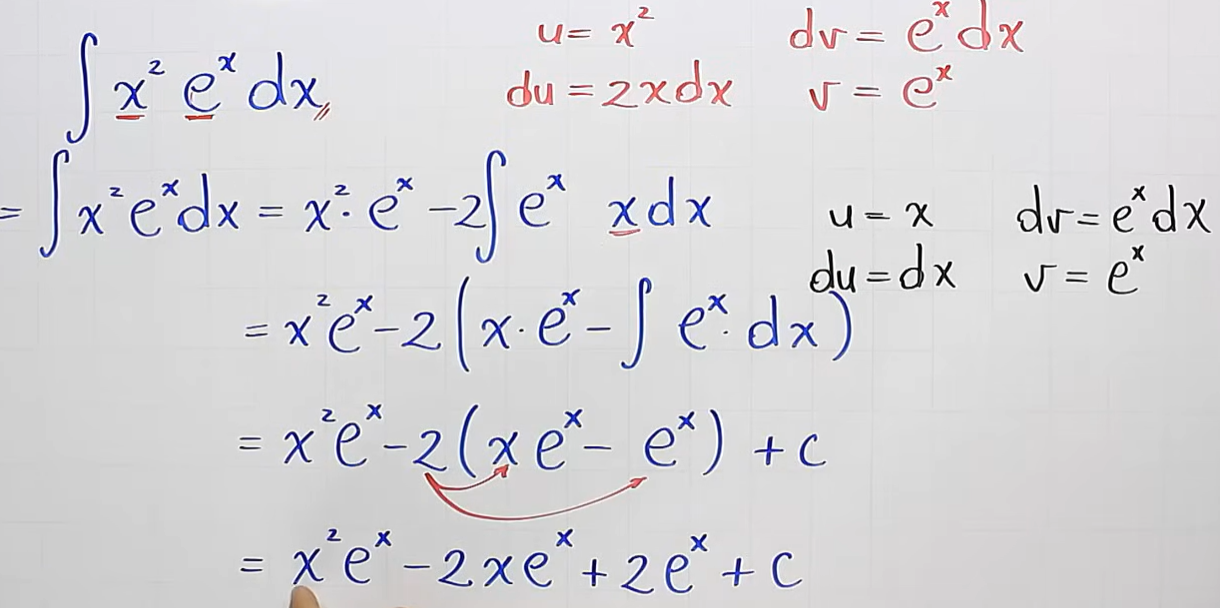 ∫ x² eˣ dx,,
u = x² dv = eˣ dx
du = 2x dx v = eˣ
= ∫ x² eˣ dx = x² · eˣ - 2 ∫ eˣ x dx
u = x dv = eˣ dx
du = dx v = eˣ
= x² eˣ - 2 ( x · eˣ - ∫ eˣ · dx )
= x² eˣ - 2 ( x eˣ - eˣ ) + c
= x² eˣ - 2 x eˣ + 2 eˣ + c